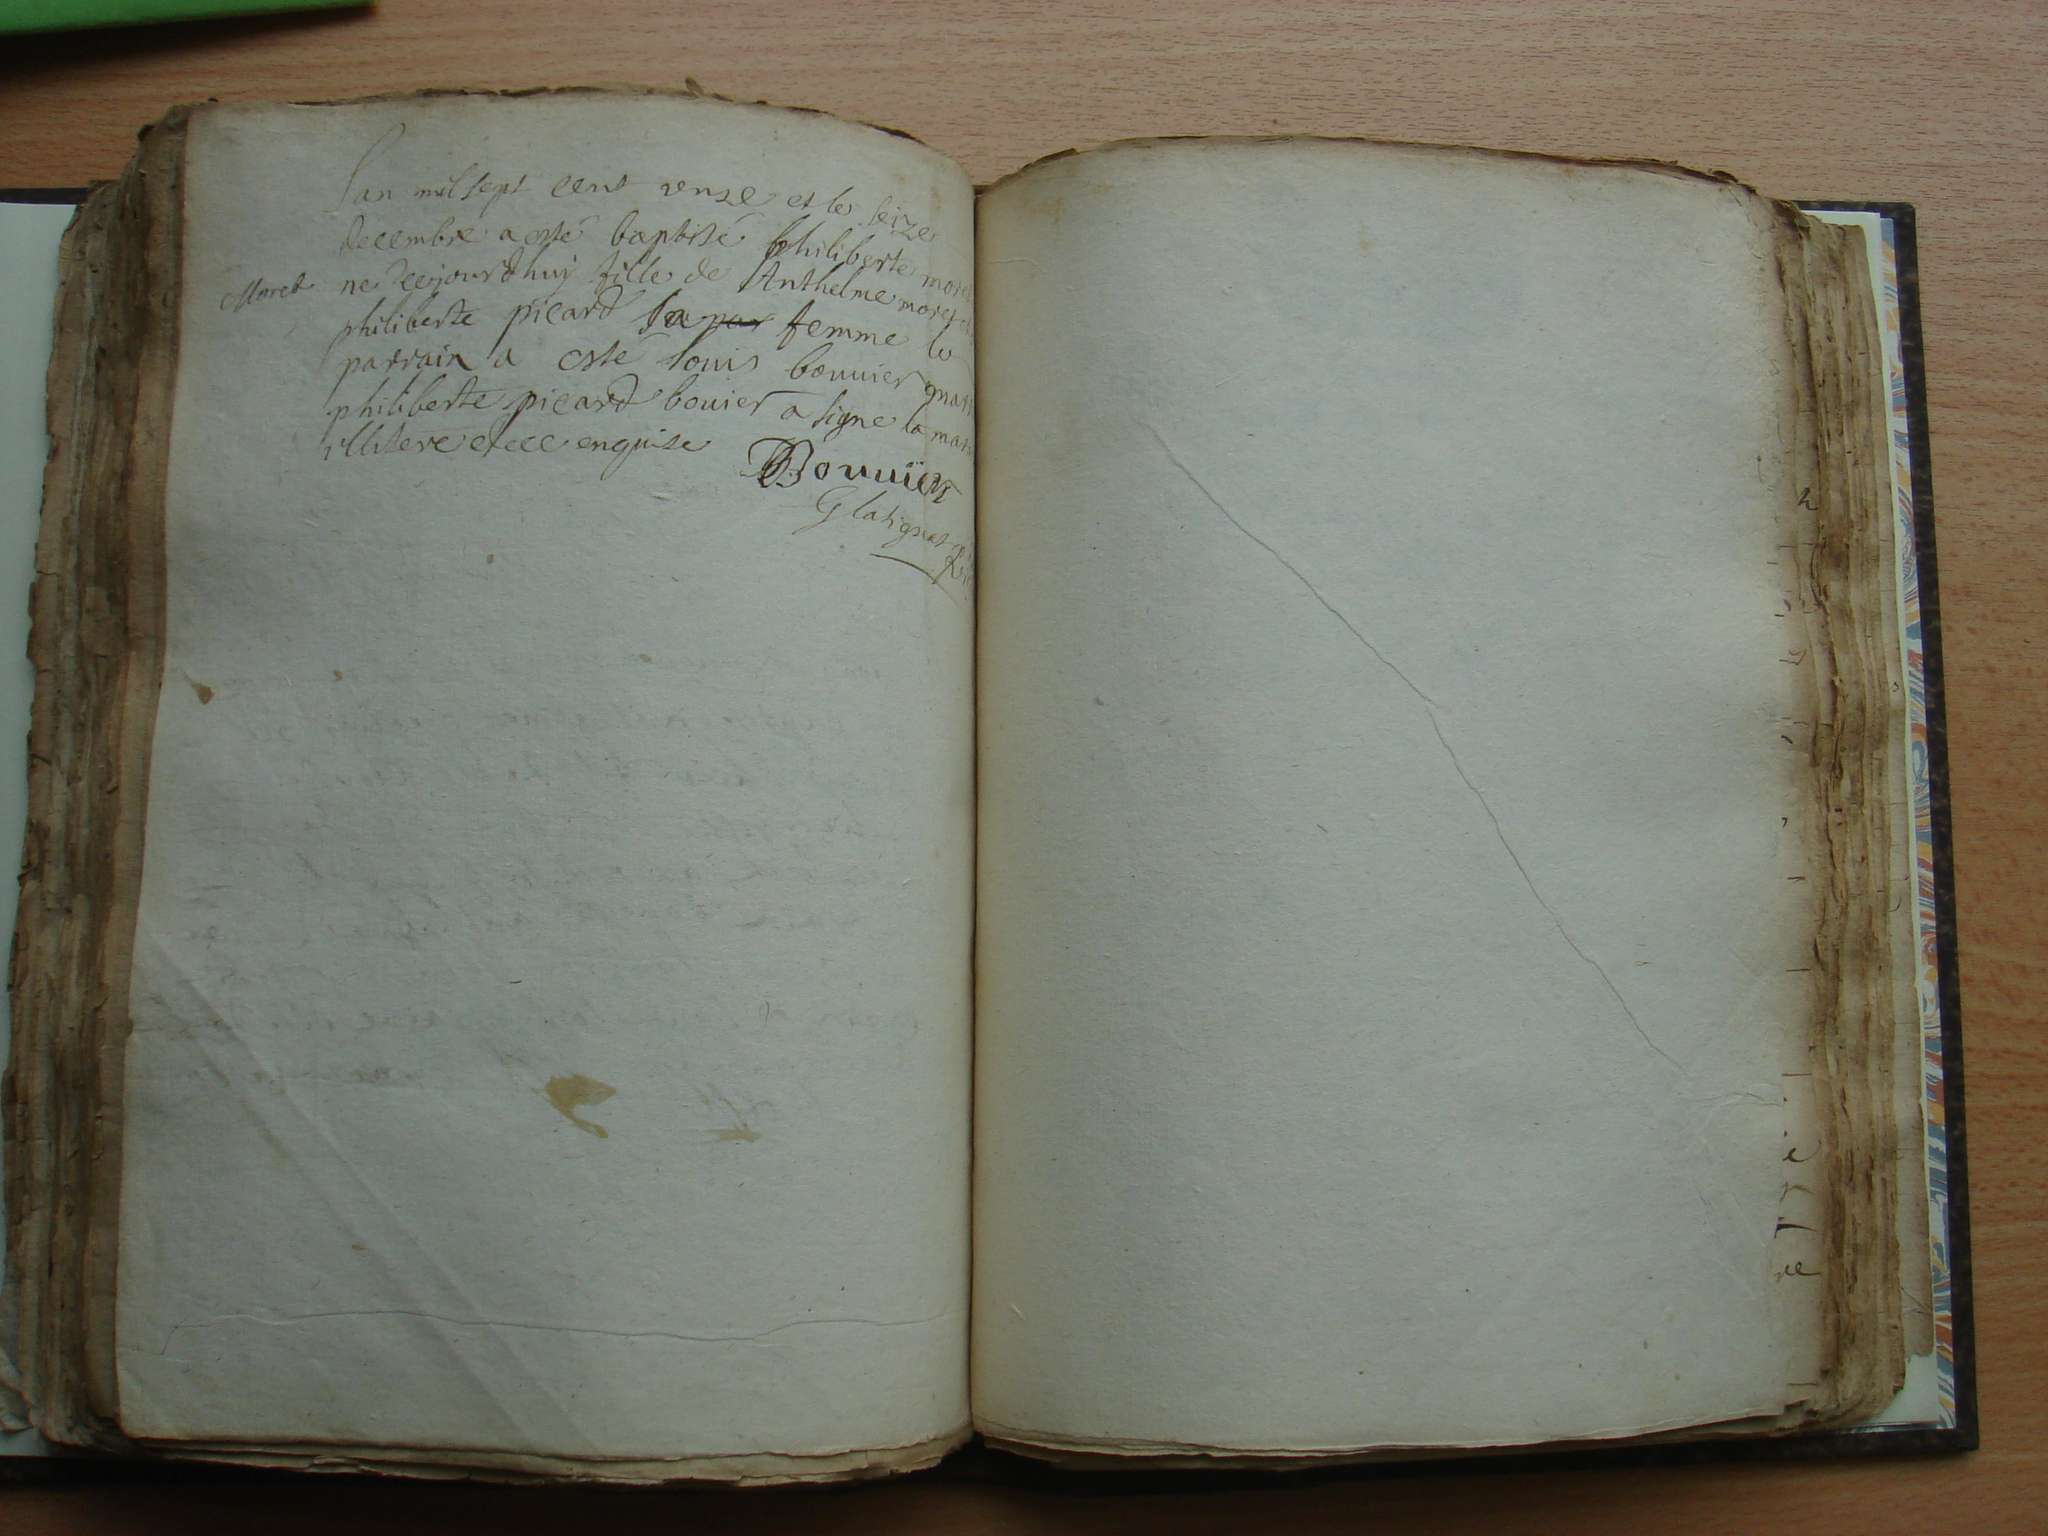 Lan mil sept cent unze et le seize
decembre a esté baptisé philiberte moret
Moret
ne cejourdhuy fille de Anthelme moret et
philiberte picard sa femme le
parrain a esté Louis bouuier
philiberte picard bouier a signe la mar
illitere enquise
Bouuier
Glatignat